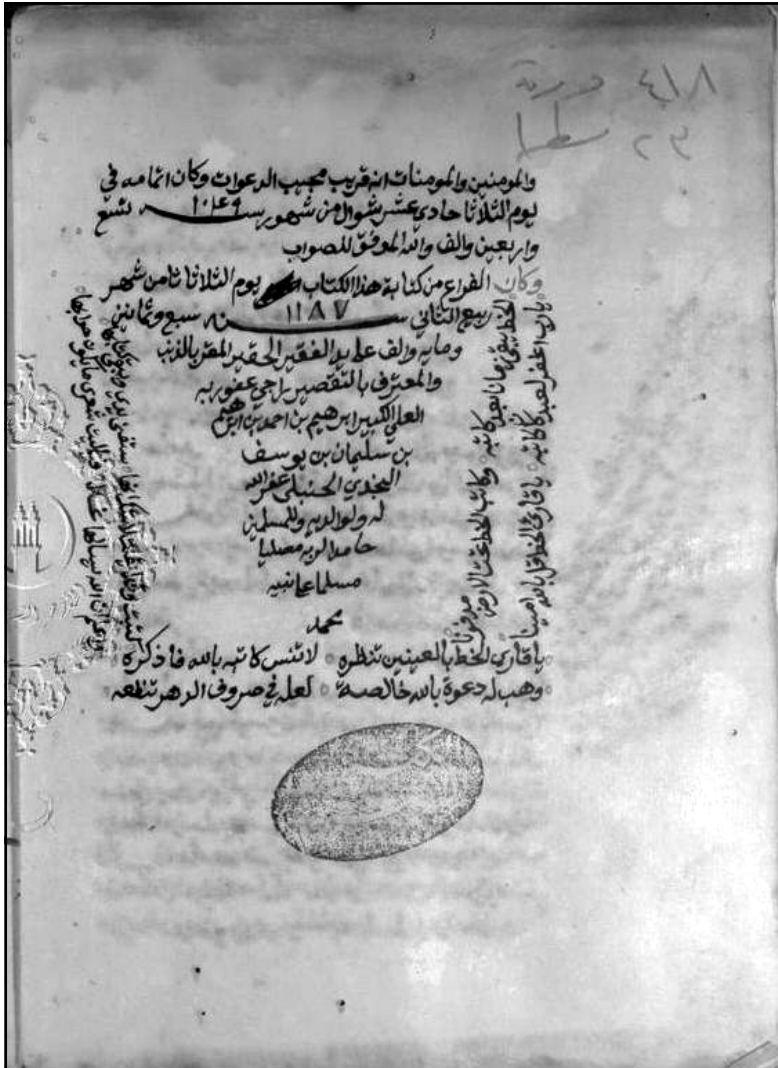 ٤١٨ ورقة
٢٣ سطرا
والمومنين والمومنات انه قريب مجيب الدعوات وكان اتمامه في
يوم الثلاثا حادي عشر شوال من شهور سنه ١٠٤٩ تسع
واربعين والف والله الموفق للصواب
وكان الفراغ من كتابة هذا الكتاب يوم الثلاثا ثامن شهر
ربيع الثاني سنه ١١٨٧ سبع وثمانين
ومايه والف على يد الفقير الحقير المقر بالذنب
والمعترف بالتقصير راجي عفو ربه
العلي الكبير ابرهيم بن احمد بن ابرهيم
بن سليمان بن يوسف
النجدي الحنبلي غفر الله
له ولوالديه وللمسلمين
حامدا لربه مصليا
مسلما على نبيه
محمد
يا قاري الخط بالعينين تنظره لا تنس كاتبه بالله فاذكره
وهب له دعوة بالله خالصة لعله في صروف الدهر تنفعه
يا رب اغفر لعبد كان كاتبه يا قارئ الخط قل بالله امينا
الخط يبقى زمانا بعد كاتبه وكاتب الخط تحت الارض مدفونا